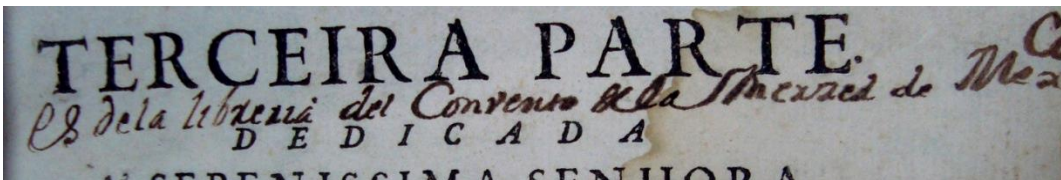 TERCEIRA PARTE.
es dela libreria del Convento de la Merced de
DEDICADA
SERENISSIMA SENHORA